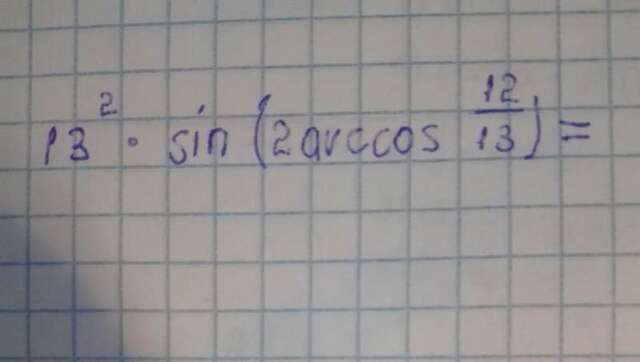 13² · sin (2arccos 12/13) =